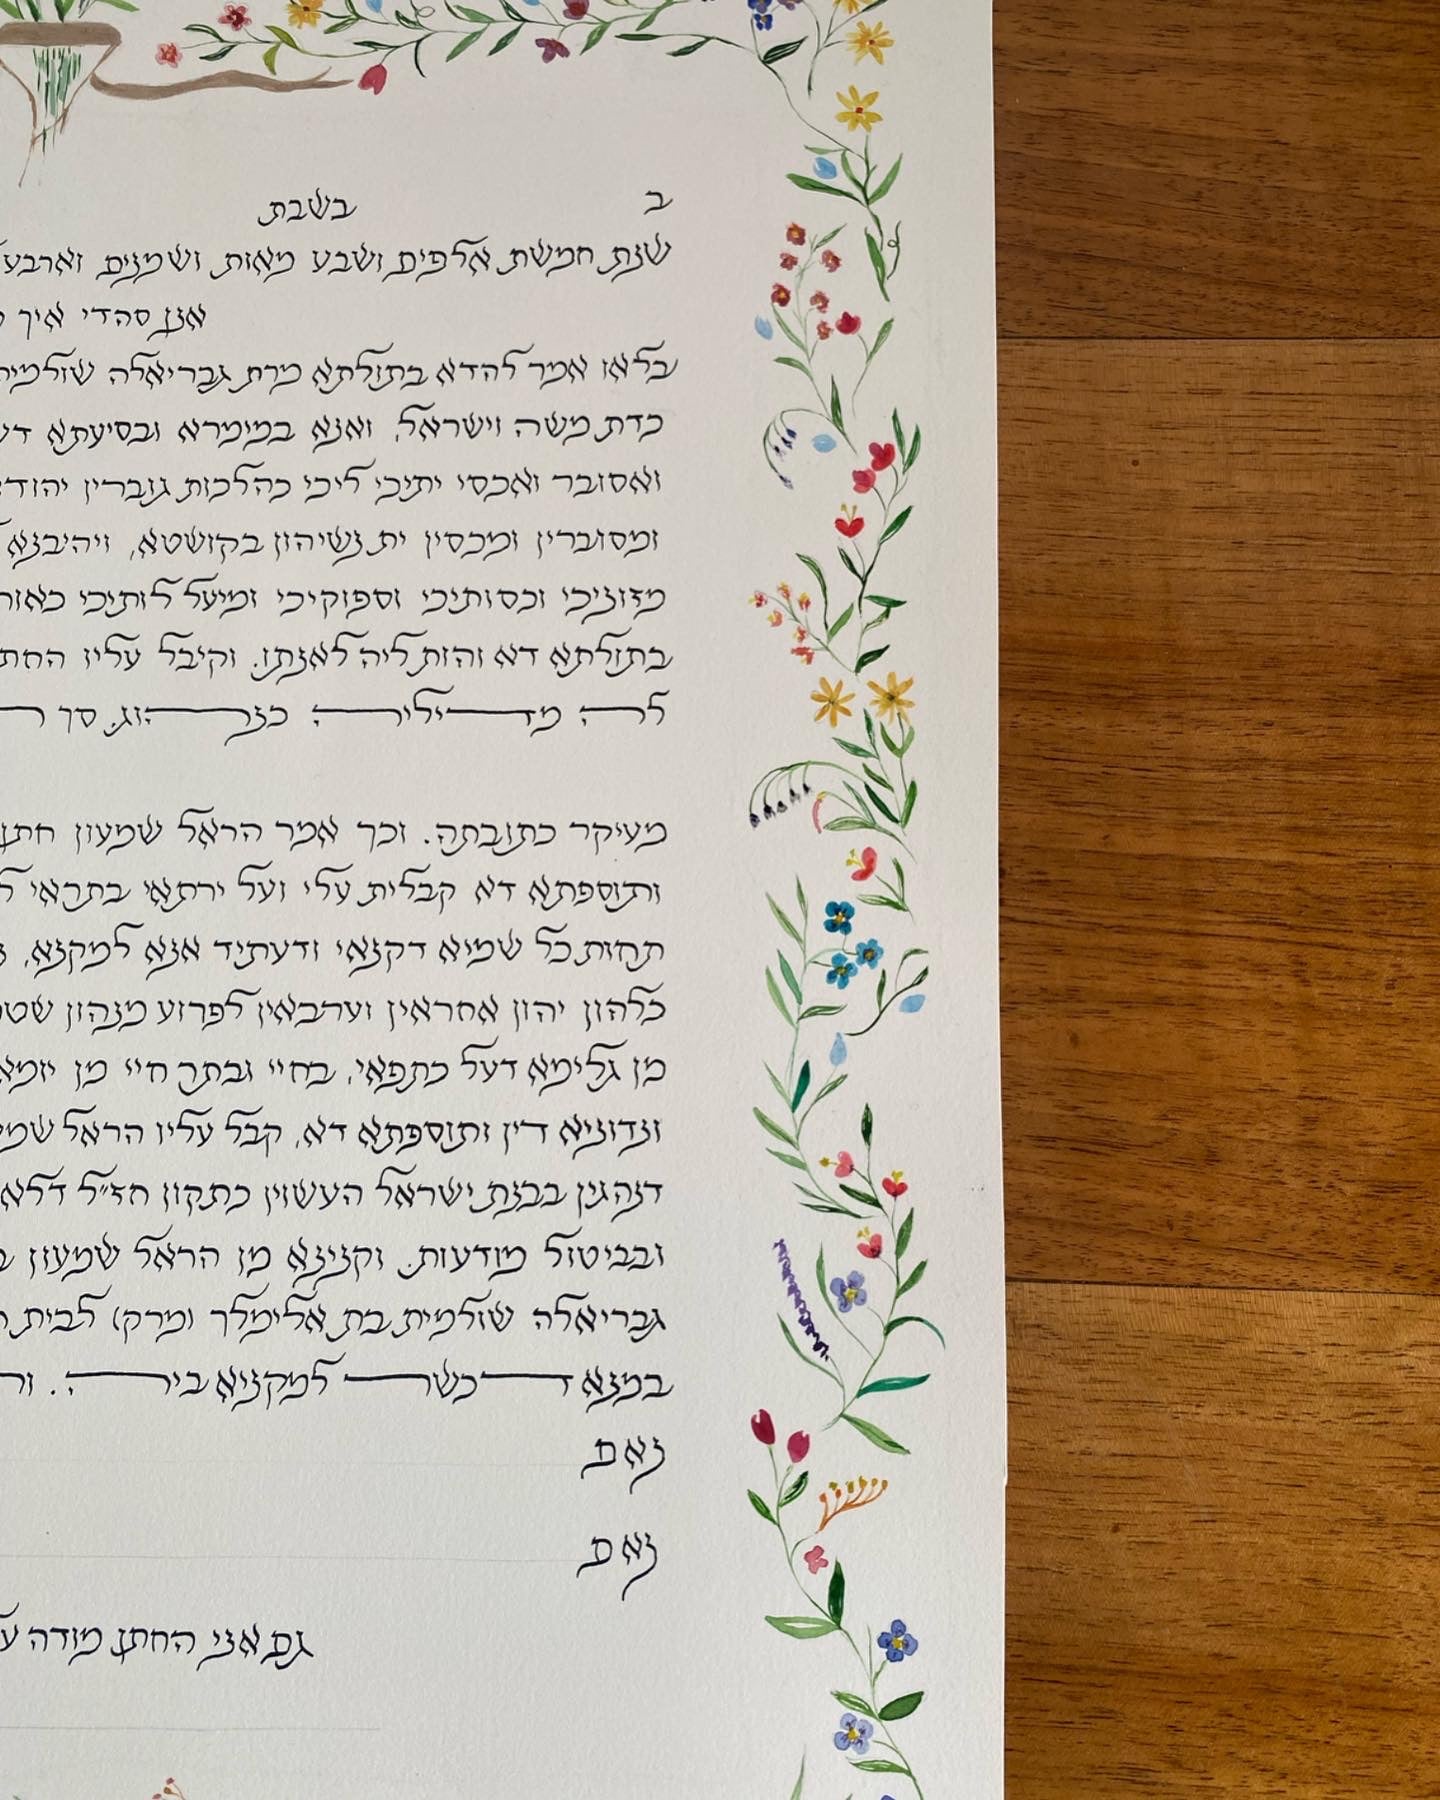 ב בשבת
שנת חמשת אלפים ושבע מאות ושמנים וארבע
אנן סהדי איך
בלאו אמר להדא בתולתא מרת גבריאלה שולמית
כדת משה וישראל, ואנא במימרא ובסיעתא
ואסובר ואכסי יתיכי ליכי כהלכות גוברין יהודאין
ומסוברין ומכסין ית נשיהון בקושטא, ויהיבנא
מזוניכי וכסותיכי וספוקיכי ומיעל לותיכי כאורח
בתולתא דא והות ליה לאנתו. וקיבל עליו החתן
לה מדיליה כנהוג, סך
מעיקר כתובתה. וכך אמר הראל שמעון חתן
ותוספתא דא קבלית עלי ועל ירתאי בתראי
תחות כל שמיא דקנאי ודעתיד אנא למקנא,
כלהון יהון אחראין וערבאין לפרוע מנהון שטר
מן גלימא דעל כתפאי, בחיי ובתר חיי מן יומא
ונדוניא דין ותוספתא דא, קבל עליו הראל שמעון
דנהגין בבנת ישראל העשוין כתקון חז״ל דלא
ובביטול מודעות. וקנינא מן הראל שמעון
גבריאלה שולמית בת אלימלך (ומרק) לבית
במנא דכשר למקניא ביה.
נאם
נאם
גם אני החתן מודה